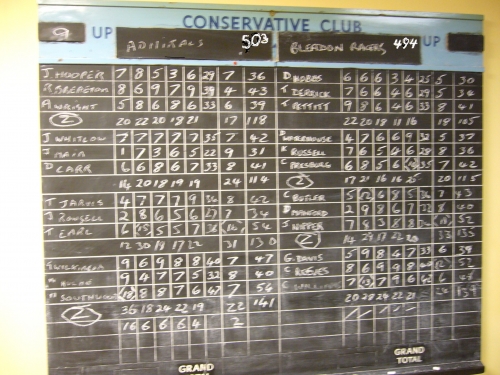 CONSERVATIVE CLUB
9 UP ADMIRALS 503 BLEADON RACERS 494 UP
J. HOOPER 7 8 5 3 6 29 7 36
8 6 9 7 9 39 4 43
A. WRIGHT 5 8 6 8 6 33 6 39
2 20 22 20 18 21 17 118
J. WHITLOW 7 7 7 7 7 35 7 42
J. MAIN 1 7 3 6 5 22 9 31
D. CARR 6 6 8 6 7 33 8 41
2 14 20 18 19 19 24 114
T. JARVIS 4 7 7 7 9 34 8 42
J. ROWSELL 2 8 6 5 6 27 7 34
T. EARL
12 30 18 17 22 31 130
9 6 9 8 8 40 7 47
9 4 7 7 5 32 8 40
8 8 8 7 47 7 54
2 36 18 24 22 19 22 141
16 6 6 6 4 2
D HOBBS 6 6 6 3 4 25 5 30
T DERRICK 7 6 6 4 6 29 5 34
T PETTITT 9 8 6 4 6 33 8 41
22 20 18 11 16 18 105
4 7 6 6 9 32 5 37
K RUSSELL 7 6 5 4 6 28 8 36
C PEESBURG 6 8 5 6 35 7 42
2 17 21 16 20 115
C BUTLER 7 43
D MANFORD 2 9 8 6 7 32 8 40
J NIPPER 52
2 33 135
G. DAVIS 5 9 8 4 7 33 6 39
C REEVES 8 6 9 9 8 40 52
20 28 24 22 21
GRAND TOTAL
GRAND TOTAL